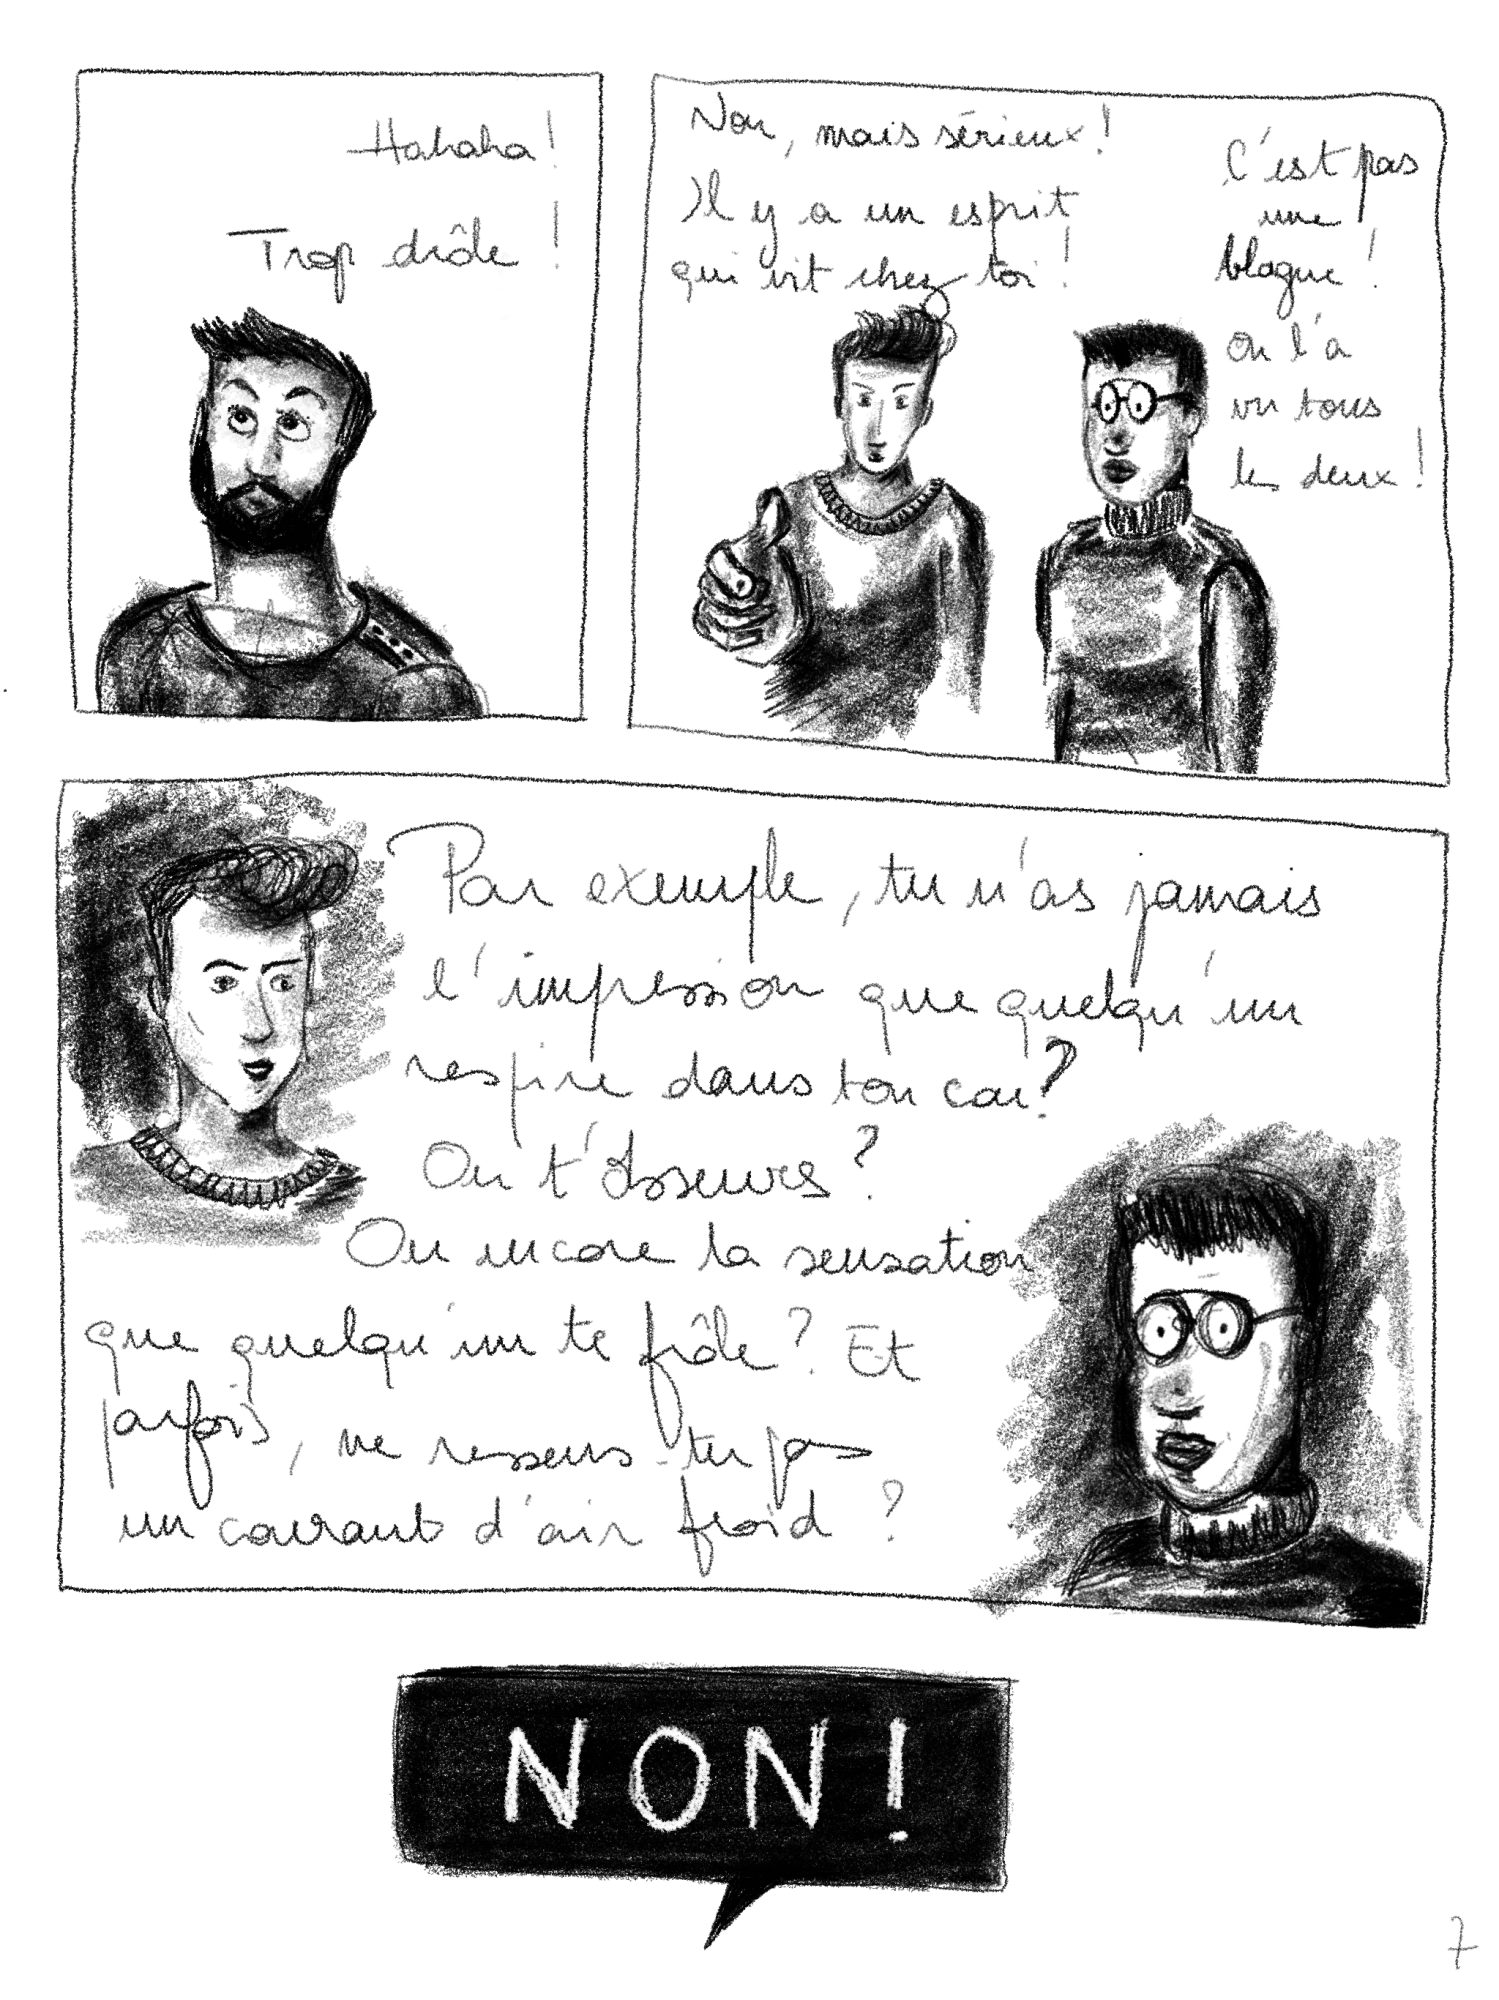 Hahaha!
Trop drôle !
Non, mais sérieux !
Il y a un esprit
qui vit chez toi !
C'est pas
une
blague !
On l'a
vu tous
les deux !
Par exemple, tu n'as jamais
l'impression que quelqu'un
respire dans ton cou ?
On t'observes ?
Ou encore la sensation
que quelqu'un te frôle ? Et
parfois, ne ressens-tu pas
un courant d'air froid ?
NON !
7